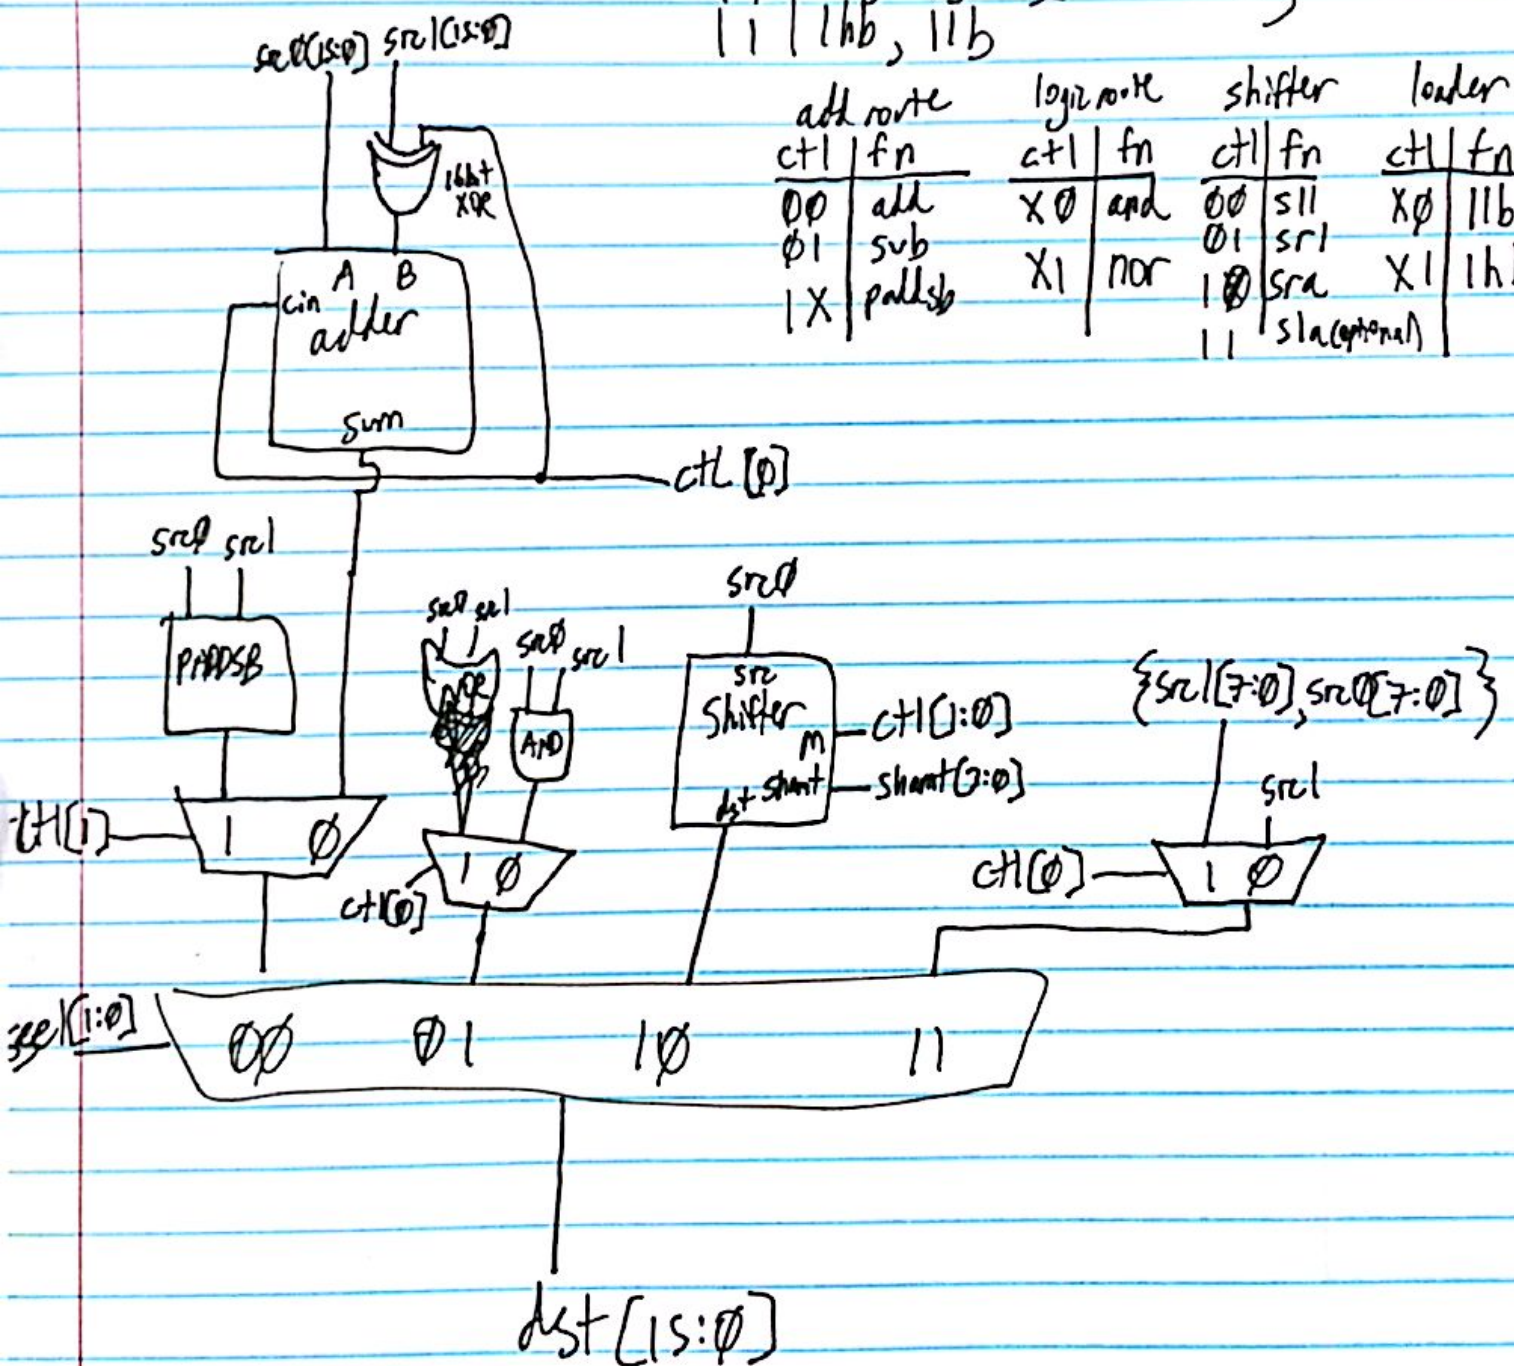 11 | lhb, llb
src0[15:0] src1[15:0]
add route
ctl | fn
00 | add
01 | sub
1X | paddsb
logic route
ctl | fn
X0 | and
X1 | nor
shifter
ctl | fn
00 | sll
01 | srl
10 | sra
11 | sla (optional)
loader
ctl | fn
X0 | llb
X1 | lh
16bit
XOR
A B
cin
adder
sum
ctl[0]
src0 src1
PADDSB
src0 src1
src0 src1
AND
src0
src
Shifter
M
ctl[1:0]
shamt
shamt[3:0]
dst
{src1[7:0], src0[7:0]}
src1
ctl[1]
1 0
ctl[0]
1 0
ctl[0]
1 0
sel[1:0]
00 01 10 11
dst[15:0]